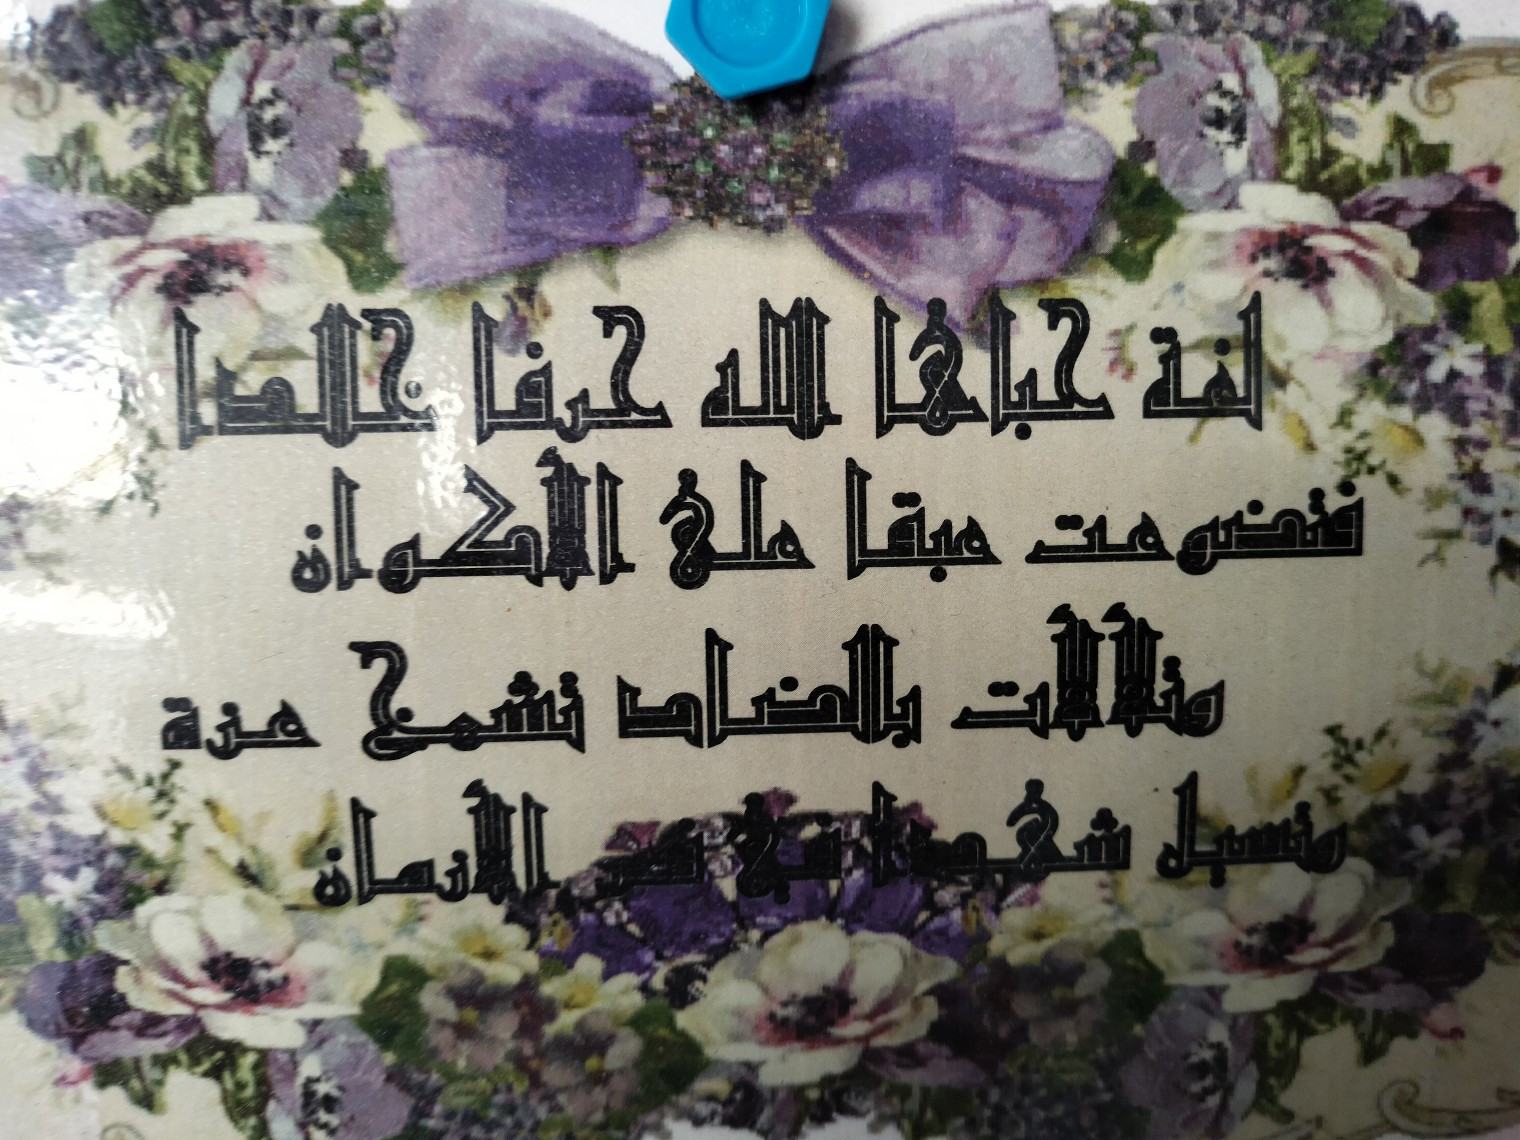 لغة حباها الله حرفا خالدا
فتضوعت عبقا على الأكوان
وتلألأت بالضاد تشمخ عزة
وتسيل شهدا في فم الأزمان